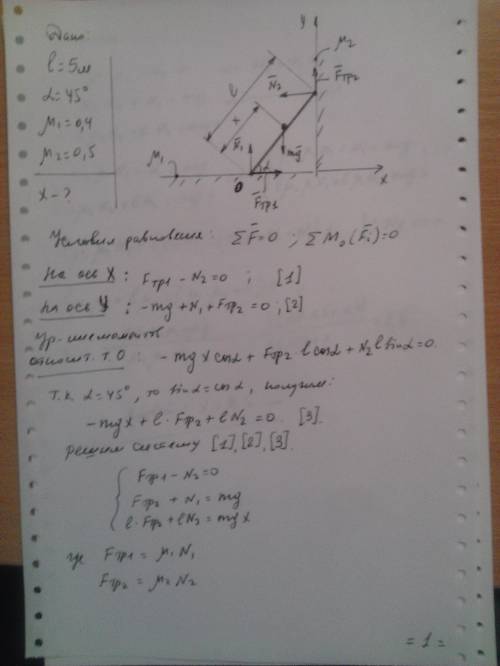 Дано:
l = 5м
α = 45°
μ₁ = 0,4
μ₂ = 0,5
x - ?
y
μ₂
F̄тр₂
N̄₂
l
x
N̄₁
mḡ
μ₁
α
O
F̄тр₁
x
Условия равновесия: ΣF̄=0 ; ΣM₀(F̄ᵢ)=0
На ось X : Fтр₁ - N₂ = 0 ; [1]
На ось Y : -mg + N₁ + Fтр₂ = 0 ; [2]
Ур-ие моментов
относит. т. О : - mg x cosα + Fтр₂ · l cosα + N₂ l sinα = 0.
Т.к. α = 45°, то sinα = cosα, получим:
-mgx + l · Fтр₂ + l N₂ = 0. [3].
решим систему [1], [2], [3].
Fтр₁ - N₂ = 0
Fтр₂ + N₁ = mg
l · Fтр₂ + l N₂ = mg x
где Fтр₁ = μ₁ N₁
Fтр₂ = μ₂ N₂
= 1 =